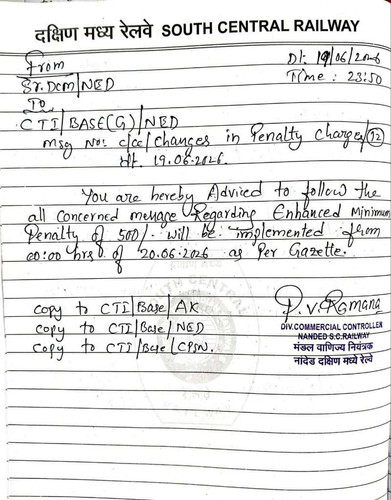 दक्षिण मध्य रेलवे SOUTH CENTRAL RAILWAY
From
Dt: 19/06/2026
Time: 23:50
Sr.DCM/NED
To
CTI/BASE(G)/NED
msg No: c/cc/changes in Penalty Charges/12
dt. 19.06.2026.
You are hereby Advised to follow the
all Concerned message Regarding Enhanced Minimum
Penalty of 500/- will be implemented from
00:00 hrs of 20.06.2026 as Per Gazette.
SOUTH CENTRAL
copy to CTI/Base/AK
copy to CTI/Base/NED
copy to CTI/Base/CPSN.
P.V.Ramana
DIV.COMMERCIAL CONTROLLER
NANDED S.C.RAILWAY
मंडल वाणिज्य नियंत्रक
नांदेड दक्षिण मध्ये रेल्वे